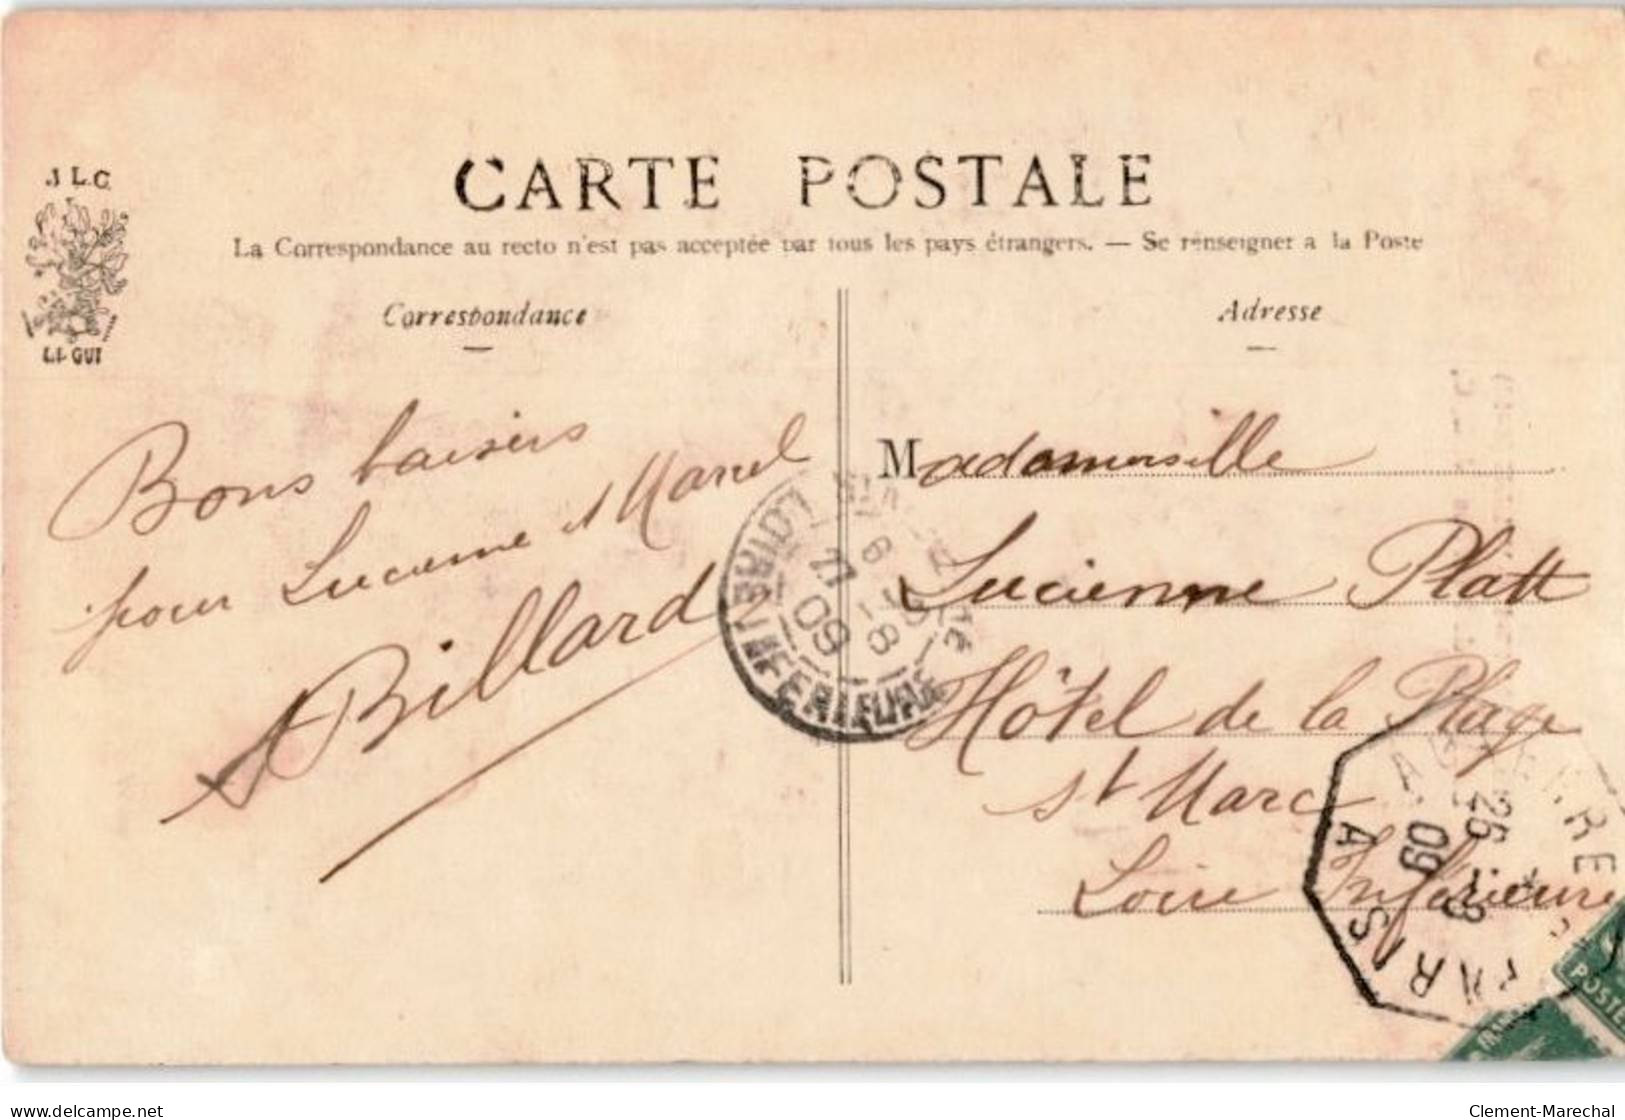 J L C
LE GUI
CARTE POSTALE
La Correspondance au recto n'est pas acceptée par tous les pays étrangers. — Se renseigner a la Poste
Correspondance
Adresse
Bons baisers
pour Lucienne et Marcel
A Billard
Mademoiselle
Lucienne Platt
Hôtel de la Plage
St Marc
Loire Inférieure
LOIRE INFERIEURE
27 -8
09
PARIS A
26 -8
09
POSTES
www.delcampe.net
Clement-Marechal